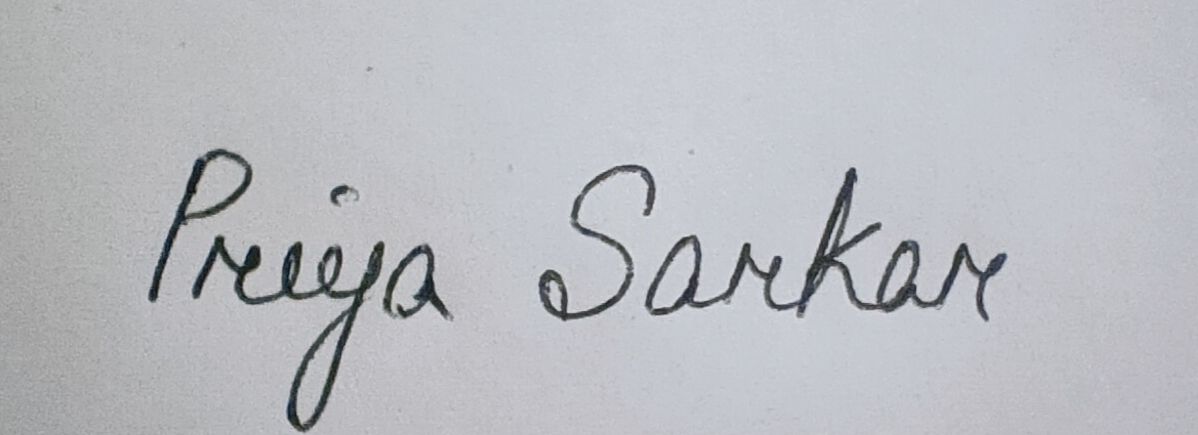 Priya Sarkar